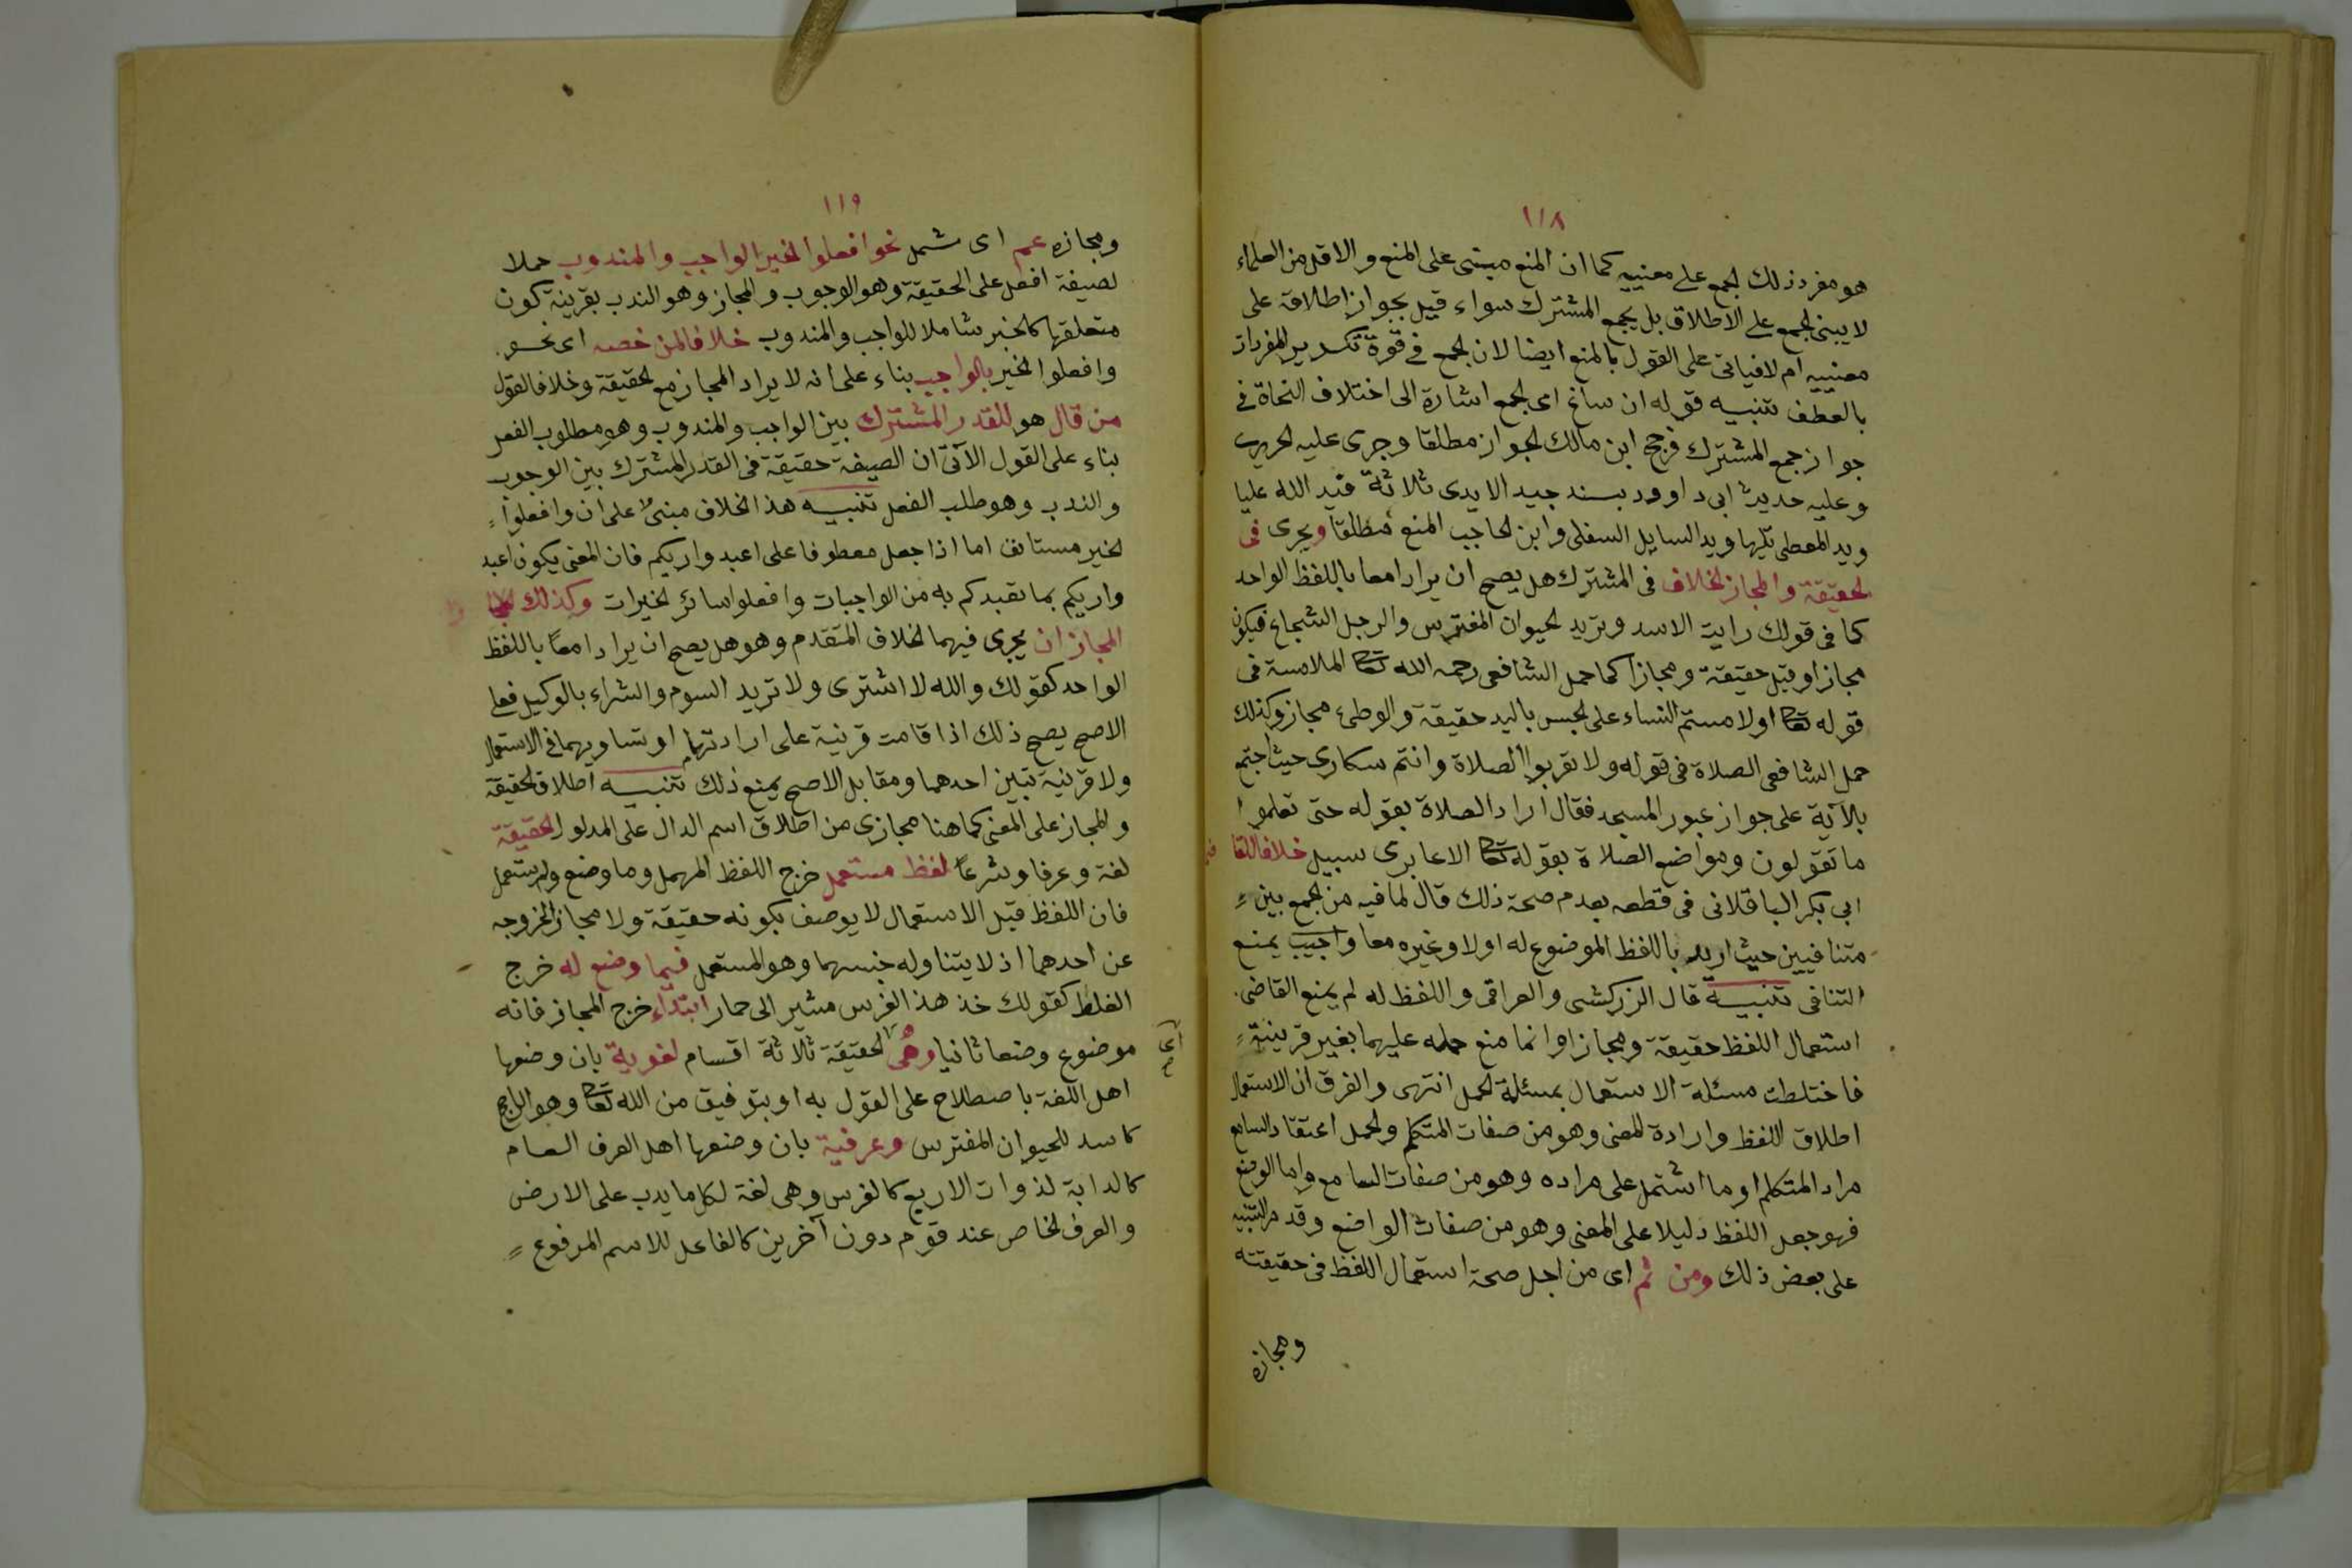 ١١٨
هو مفرد ذلك الجمع على معنييه كما ان المنع مبنى على المنع والاقل من العلماء
لا يبنى الجمع على الاطلاق بل يجمع المشترك سواء قيل بجواز اطلاقه على
معنييه ام لا فياتى على القول بالمنع ايضا لان الجمع فى قوة تكرير المفردات
بالعطف تنبيه قوله ان ساغ اى الجمع اشارة الى اختلاف النحاة فى
جواز جمع المشترك فرجح ابن مالك الجواز مطلقا وجرى عليه الحريرى
وعليه حديث ابى داوود بسند جيد الايدى ثلاثة فيد الله عليا
ويد المعطى تليها ويد السايل السفلى وابن الحاجب المنع مطلقا ويجرى فى
الحقيقة والمجاز الخلاف فى المشترك هل يصح ان يرادا معا باللفظ الواحد
كما فى قولك رايت الاسد وتريد الحيوان المفترس والرجل الشجاع فيكون
مجازا وقيل حقيقة ومجازا كما حمل الشافعى رحمه الله تعالى الملامسة فى
قوله تعالى او لامستم النساء على الجس باليد حقيقة والوطئ مجاز وكذلك
حمل الشافعى الصلاة فى قوله ولا تقربوا الصلاة وانتم سكارى حيث احتج
بالآية على جواز عبور المسجد فقال اراد الصلاة بقوله حتى تعلموا
ما تقولون ومواضع الصلاة بقوله تعالى الا عابرى سبيل خلافا للقا ضى
ابى بكر الباقلانى فى قطعه بعدم صحة ذلك قال لما فيه من الجمع بين
متنافيين حيث اريد باللفظ الموضوع له اولا وغيره معا واجيب بمنع
التنافى تنبيه قال الزركشى والعراقى واللفظ له لم يمنع القاضى
استعمال اللفظ حقيقة ومجازا وانما منع حمله عليهما بغير قرينة
فاختلطت مسئلة الاستعمال بمسئلة الحمل انتهى والفرق ان الاستعمال
اطلاق اللفظ وارادة المعنى وهو من صفات المتكلم والحمل اعتقاد السامع
مراد المتكلم او ما اشتمل على مراده وهو من صفات السامع واما الوضع
فهو جعل اللفظ دليلا على المعنى وهو من صفات الواضع وقد مر التنبيه
على بعض ذلك ومن ثم اى من اجل صحة استعمال اللفظ فى حقيقته
ومجازه
١١٩
ومجازه عم اى شمل نحو افعلوا الخير الواجب والمندوب حملا
لصيغة افعل على الحقيقة وهو الوجوب والمجاز وهو الندب بقرينة كون
متعلقها كالخبر شاملا للواجب والمندوب خلافا لمن خصه اى نحو
وافعلوا الخير بالواجب بناء على انه لا يراد المجاز مع الحقيقة وخلافا لقول
من قال هو للقدر المشترك بين الواجب والمندوب وهو مطلوب الفعل
بناء على القول الآتى ان الصيغة حقيقة فى القدر المشترك بين الوجوب
والندب وهو طلب الفعل تنبيه هذا الخلاف مبنىٌ على ان وافعلوا
الخير مستانف اما اذا جعل معطوفا على اعبدوا ربكم فان المعنى يكون اعبد
وا ربكم بما تعبدكم به من الواجبات وافعلوا سائر الخيرات وكذلك
المجازان يجرى فيهما الخلاف المتقدم وهو هل يصح ان يرادا معًا باللفظ
الواحد كقولك والله لا اشترى ولا تريد السوم والشراء بالوكيل فعلى
الاصح يصح ذلك اذا قامت قرينة على ارادتهما او تساويهما فى الاستعمال
ولا قرينة تبين احدهما ومقابل الاصح يمنع ذلك تنبيه اطلاق الحقيقة
والمجاز على المعنى كما هنا مجازى من اطلاق اسم الدال على المدلول الحقيقة
لغة وعرفا وشرعًا لفظ مستعمل خرج اللفظ المهمل وما وضع ولم يستعمل
فان اللفظ قبل الاستعمال لا يوصف بكونه حقيقة ولا مجازا لخروجه
عن احدهما اذ لا يتناوله جنسهما وهو المستعمل فيما وضع له خرج
الغلط كقولك خذ هذا الفرس مشير الى حمار ابتداء خرج المجاز فانه
موضوع وضعا ثانيا وهى اى الحقيقة ثلاثة اقسام لغوية بان وضعها
اهل اللغة باصطلاح على القول به او بتوفيق من الله تعالى وهو الراجح
كاسد للحيوان المفترس وعرفية بان وضعها اهل العرف العام
كالدابة لذوات الاربع كالفرس وهى لغة لكل ما يدب على الارض
والعرف الخاص عند قوم دون آخرين كالفاعل للاسم المرفوع